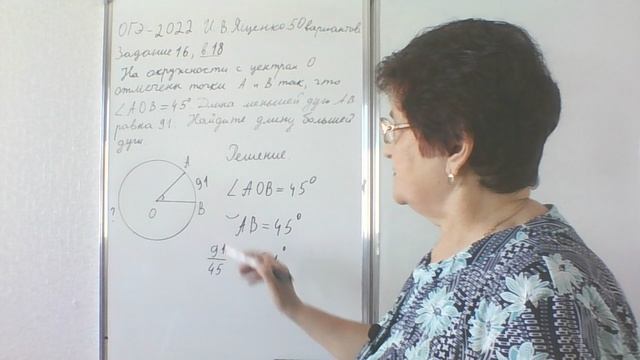 ОГЭ-2022 И.В.Ященко 50 вариантов
Задание 16, в 18
На окружности с центром О
отмечены точки А и В так, что
∠AOB = 45° Длина меньшей дуги АВ
равна 91. Найдите длину большей
дуги.
Решение.
A
91
B
O
?
∠AOB = 45°
◡AB = 45°
91
45